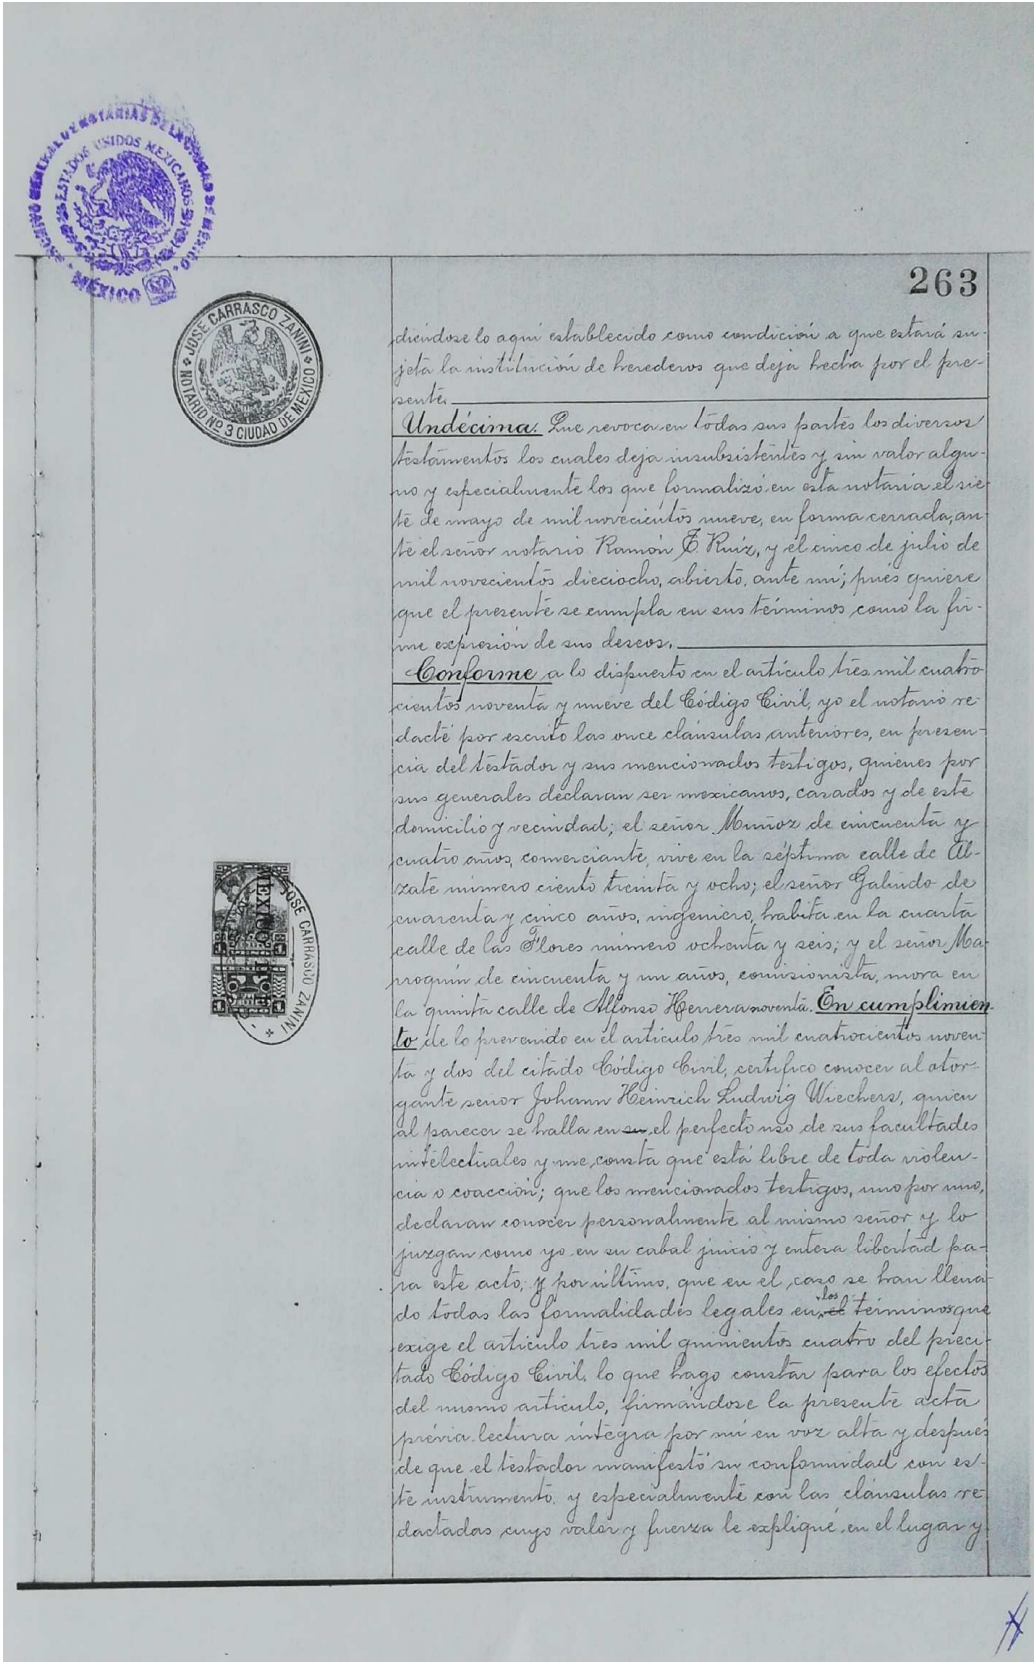 ARCHIVO GENERAL DE NOTARIAS DE LA CIUDAD DE MEXICO
ESTADOS UNIDOS MEXICANOS
MÉXICO
263
JOSE CARRASCO ZANINI
NOTARIO Nº 3 CIUDAD DE MEXICO
diéndose lo aquí establecido como condición a que estará su-
jeta la institución de herederos que deja hecha por el pre-
sente.
Undécima. Que revoca en todas sus partes los diversos
testamentos los cuales deja insubsistentes y sin valor algu-
no y especialmente los que formalizó en esta notaría el sie-
te de mayo de mil novecientos nueve, en forma cerrada, an-
te el señor notario Ramón E. Ruíz, y el cinco de julio de
mil novecientos dieciocho, abierto, ante mí; pués quiere
que el presente se cumpla en sus términos como la fir-
me expresión de sus deseos.
Conforme a lo dispuesto en el artículo tres mil cuatro-
cientos noventa y nueve del Código Civil, yo el notario re-
dacté por escrito las once cláusulas anteriores, en presen-
cia del testador y sus mencionados testigos, quienes por
sus generales declaran ser mexicanos, casados y de este
domicilio y vecindad; el señor Muñoz de cincuenta y
cuatro años, comerciante, vive en la séptima calle de Al-
zate número ciento treinta y ocho; el señor Galindo de
cuarenta y cinco años, ingeniero, habita en la cuarta
calle de las Flores número ochenta y seis; y el señor Ma-
rroquín de cincuenta y un años, comisionista, mora en
la quinta calle de Alfonso Herrera noventa. En cumplimien-
to de lo prevenido en el artículo tres mil cuatrocientos noven-
ta y dos del citado Código Civil, certifico conocer al otor-
gante señor Johann Heinrich Ludwig Wiechers, quien
al parecer se halla en su el perfecto uso de sus facultades
intelectuales y me consta que está libre de toda violen-
cia o coacción; que los mencionados testigos, uno por uno,
declaran conocer personalmente al mismo señor y lo
juzgan como yo en su cabal juicio y entera libertad pa-
ra este acto; y por último, que en el caso se han llena-
do todas las formalidades legales en el los términos que
exige el artículo tres mil quinientos cuatro del preci-
tado Código Civil, lo que hago constar para los efectos
del mismo artículo, firmándose la presente acta
prévia lectura íntegra por mí en voz alta y después
de que el testador manifestó su conformidad con es-
te instrumento, y especialmente con las cláusulas re-
dactadas cuyo valor y fuerza le expliqué, en el lugar y
MEXICO D. F.
JOSE CARRASCO ZANINI